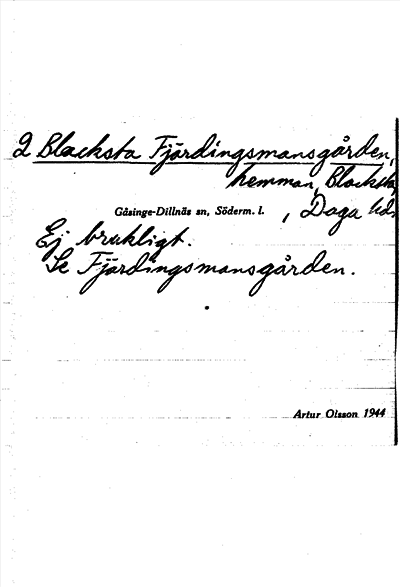 2 Blacksta Fjärdingsmansgården,
hemman, Blacksta,
Gåsinge-Dillnäs sn, Söderm. l. , Daga hd.
Ej brukligt.
Se Fjärdingsmansgården.
Artur Olsson 1944